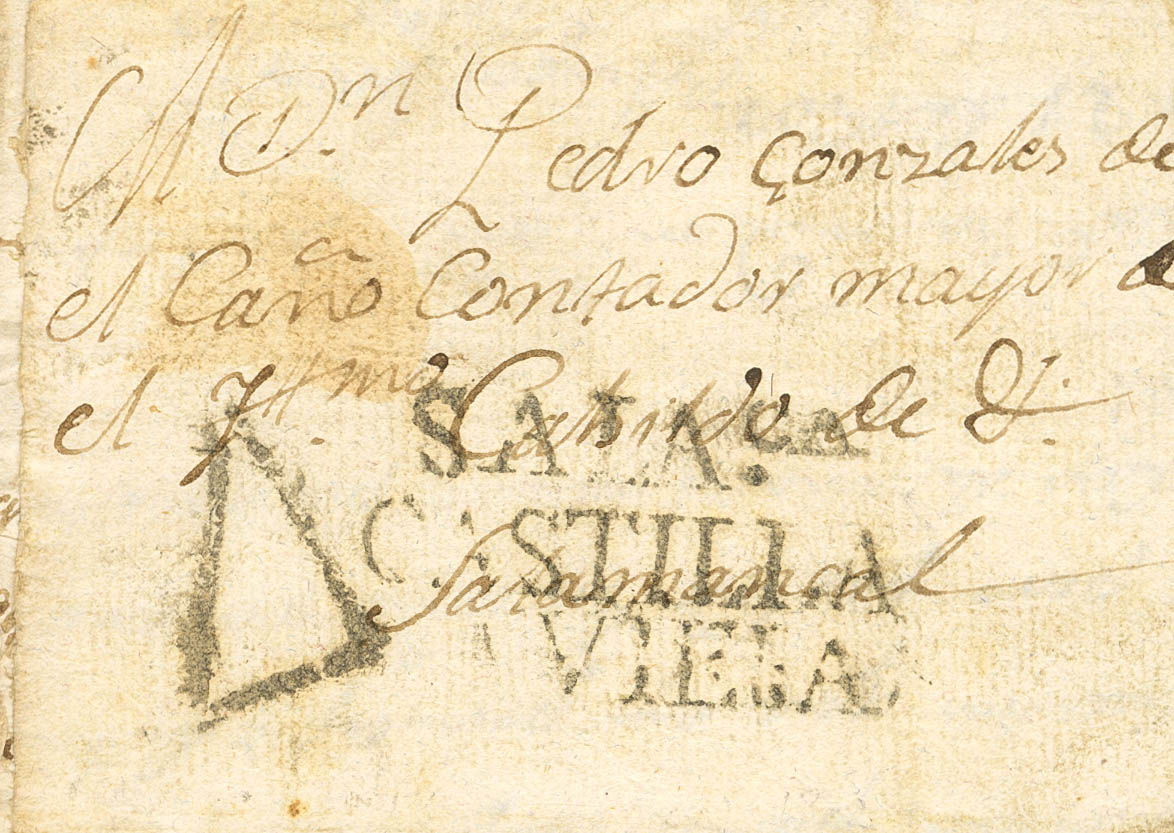 A Dn. Pedro Gonzales de
el Caño Contador mayor de
el Yttmo. Cabildo de
SALA.CA
CASTILLA
Salamanca
VIEJA